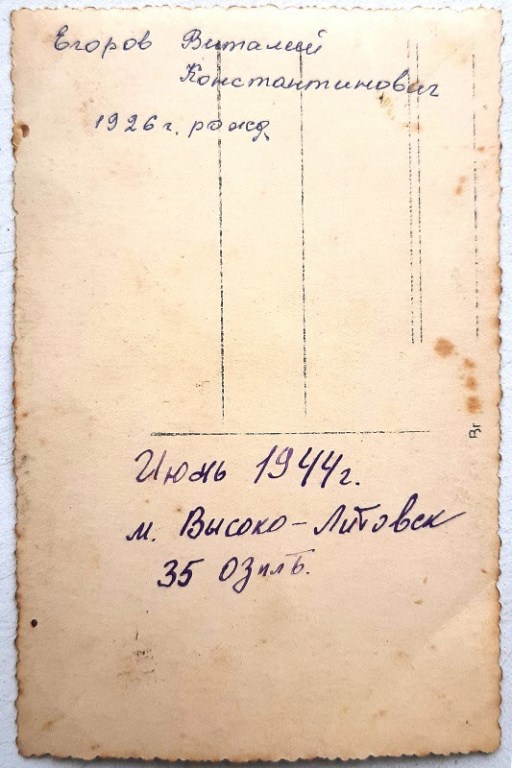 Егоров Виталий
Константинович
1926 г. рожд
Июнь 1944 г.
м. Высоко-Литовск
35 ОЗплб.
Br